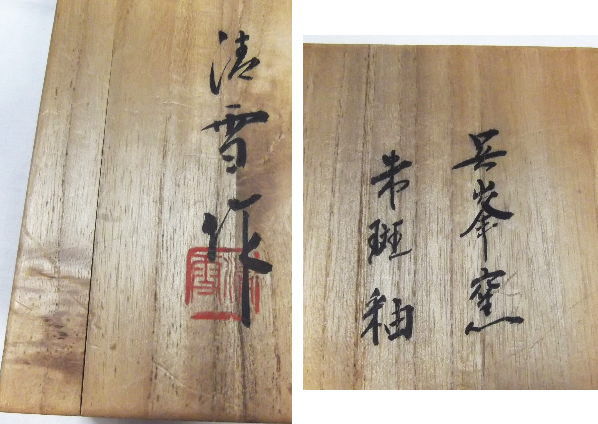 清雪作
呉峯窯
朱斑釉